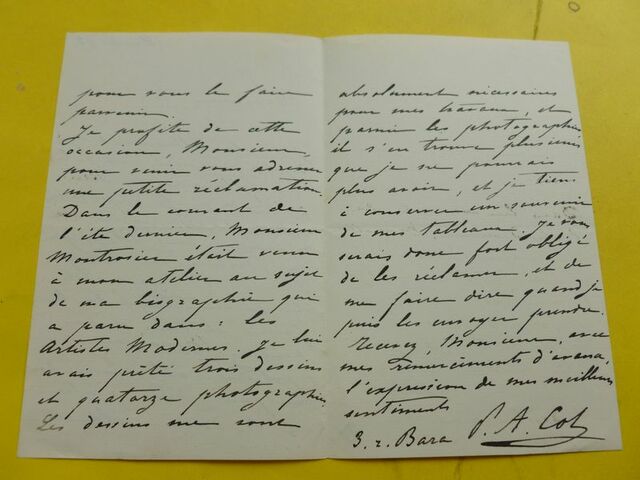 pour vous le faire
parvenir.
Je profite de cette
occasion, Monsieur,
pour venir vous adresser
une petite réclamation.
Dans le courant de
l'été dernier, Monsieur
Montrosier était venu
à mon atelier au sujet
de ma biographie qui
a paru dans: les
Artistes Modernes. Je lui
avais prêté trois dessins
et quatorze photographies.
Les dessins me sont
absolument nécessaires
pour mes travaux, et
parmi les photographies
il s'en trouve plusieurs
que je ne pourrais
plus avoir, et je tiens
à conserver un souvenir
de mes tableaux. Je vous
serais donc fort obligé
de les réclamer, et de
me faire dire quand je
puis les envoyer prendre.
Recevez, Monsieur, avec
mes remerciements d'avance,
l'expression de mes meilleurs
sentiments
3. r. Bara P. A. Cot